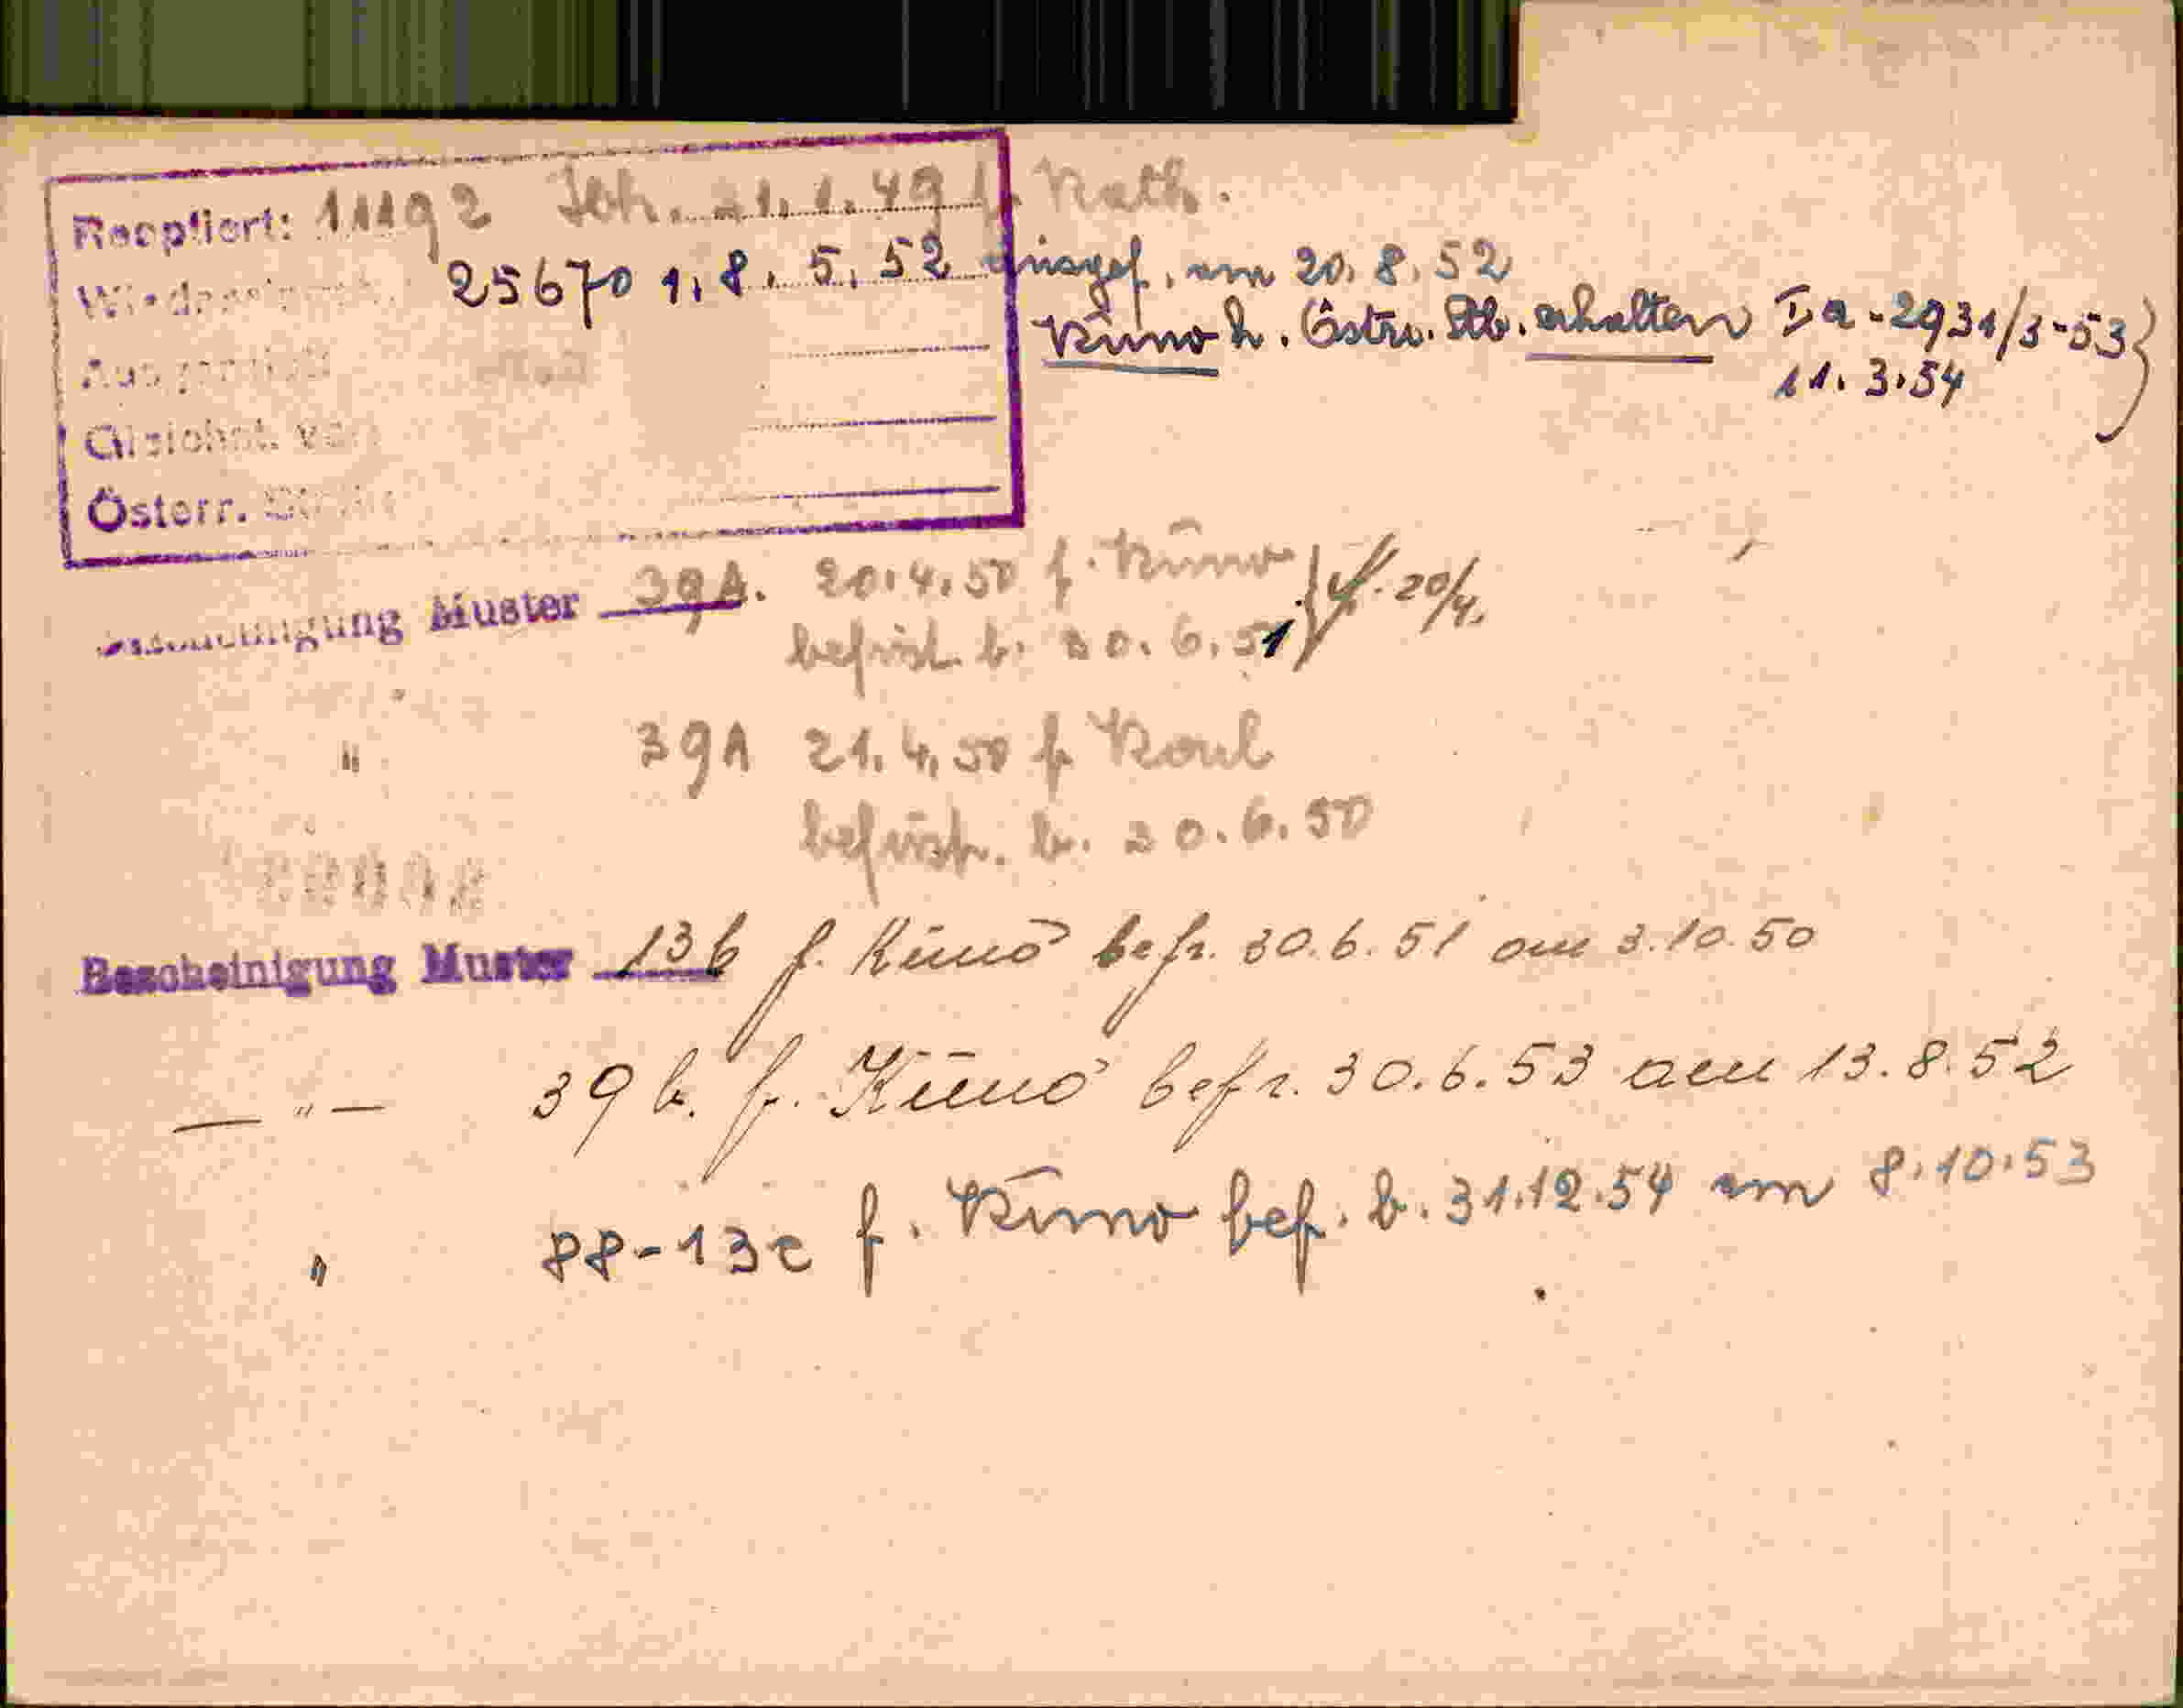 Reoptiert: 11192 Jbk. 21.1.49 f. Kath.
25670 1. 8. 5. 52 ausgef. am 20. 8. 52
Kuno h. Östr. Stb. erhalten Ia-2931/3-53
11. 3. 54
Gleichst.
Österr.
Bescheinigung Muster 39A. 20.4.50 f. Kuno
20/4.
befrist. b. 30. 6. 51
" 39A 21.4.50 f
befrist. b. 30.6.50
Bescheinigung Muster 13b f. Kuno befr. 30.6.51 am 3.10.50
— " — 39b. f. Kuno befr. 30.6.53 am 13.8.52
" 88-13c f. Kuno bef. b. 31.12.54 am 8.10.53